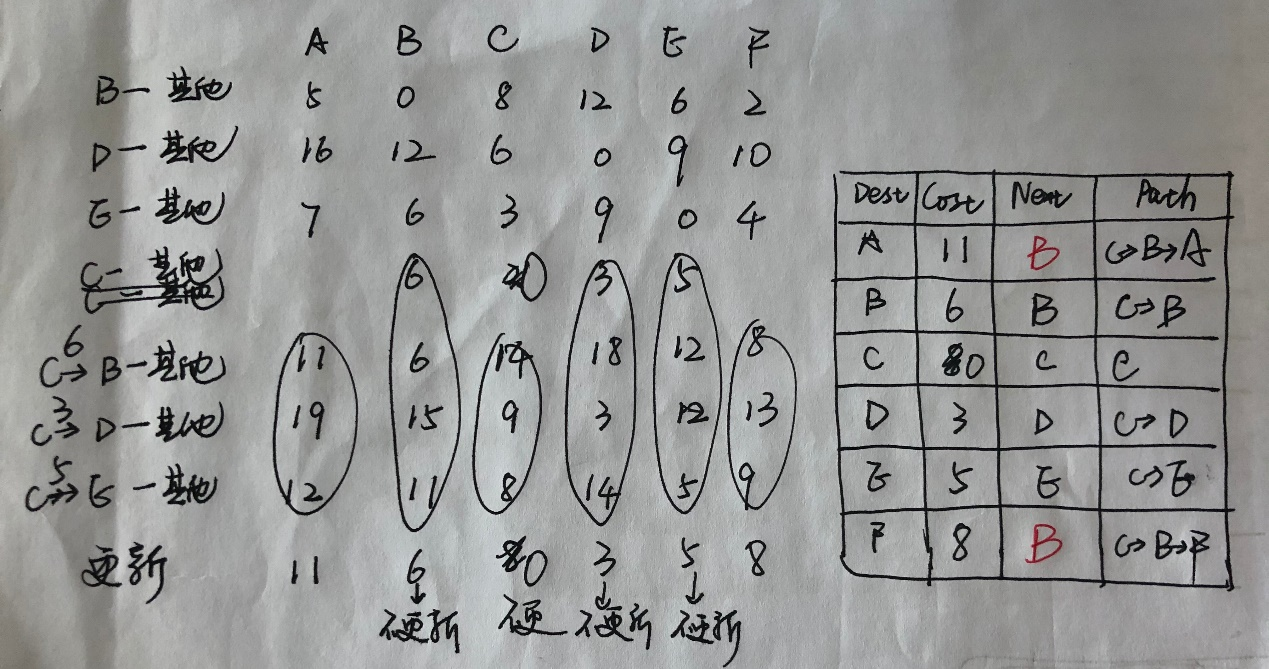 A B C D E F
B— 其他 5 0 8 12 6 2
D— 其他 16 12 6 0 9 10
E— 其他 7 6 3 9 0 4
C— 其他 6 0 3 5
C→B—其他 6 11 6 14 18 12 8
C→D—其他 3 19 15 9 3 12 13
C→E—其他 5 12 11 8 14 5 9
更新 11 6 0 3 5 8
不更新 不更 不更新 不更新
Dest Cost Next Path
A 11 B C→B→A
B 6 B C→B
C 0 C C
D 3 D C→D
E 5 E C→E
F 8 B C→B→F